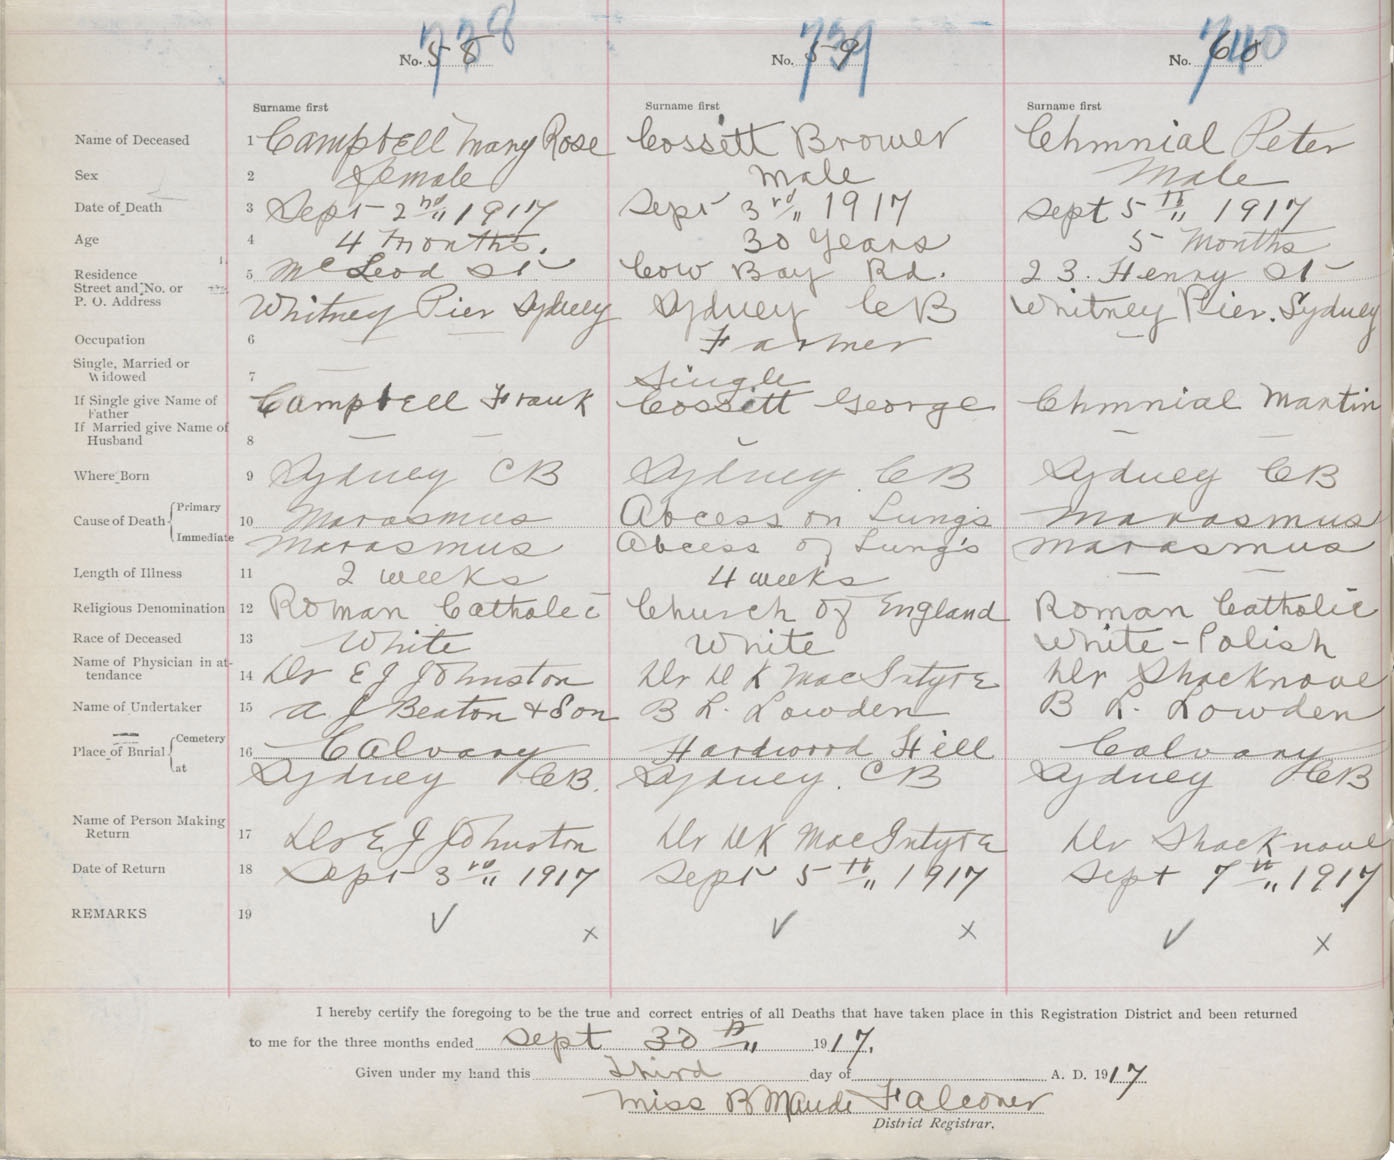 738 739 740
No. 58 No. 59 No. 60
Surname first Surname first Surname first
Name of Deceased 1 Campbell Mary Rose Cossett Brower Chmnial Peter
Sex 2 Female Male Male
Date of Death 3 Sept 2nd 1917 Sept 3rd 1917 Sept 5th 1917
Age 4 4 Months. 30 Years 5 Months
Residence 5 McLeod St Cow Bay Rd. 23. Henry St
Street and No. or
P. O. Address Whitney Pier Sydney Sydney CB Whitney Pier. Sydney
Occupation 6 — — Farmer —
Single, Married or
Widowed 7 — Single
If Single give Name of Campbell Frank Cossett George Chmnial Martin
Father
If Married give Name of
Husband 8 — — — — —
Where Born 9 Sydney CB Sydney CB Sydney CB
Cause of Death { Primary 10 Marasmus Abcess on Lungs Marasmus
Immediate Marasmus Abcess of Lung's Marasmus
Length of Illness 11 2 weeks 4 weeks — —
Religious Denomination 12 Roman Catholic Church of England Roman Catholic
Race of Deceased 13 White White White-Polish
Name of Physician in at-
tendance 14 Dr E J Johnston Dr D K MacIntyre Dr Shacknove
Name of Undertaker 15 A J Beaton + Son B L. Lowden B L. Lowden
Place of Burial { Cemetery 16 Calvary Hardwood Hill Calvary
at Sydney CB. Sydney. CB Sydney CB
Name of Person Making
Return 17 Dr E J Johnston Dr DK MacIntyre Dr Shacknove
Date of Return 18 Sept 3rd 1917 Sept 5th 1917 Sept 7th 1917
REMARKS 19 ✓ x ✓ x ✓ x
I hereby certify the foregoing to be the true and correct entries of all Deaths that have taken place in this Registration District and been returned
to me for the three months ended Sept 30th 1917.
Given under my hand this Third day of A. D. 1917
Miss B Maude Falconer
District Registrar.